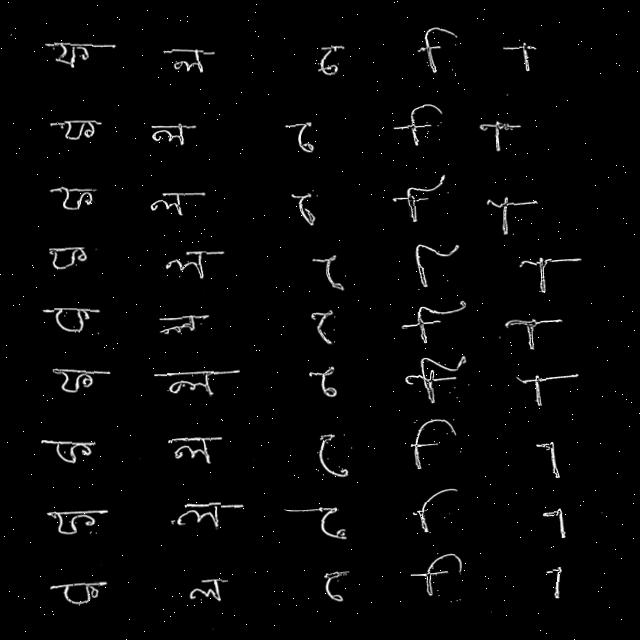 ফ ল ে ি া
ফ ল ে ি া
ফ ল ে ি া
ফ ল ে ি া
ফ ল ে ি া
ফ ল ে ি া
ফ ল ে ি া
ফ ল ে ি া
ফ ল ে ি া